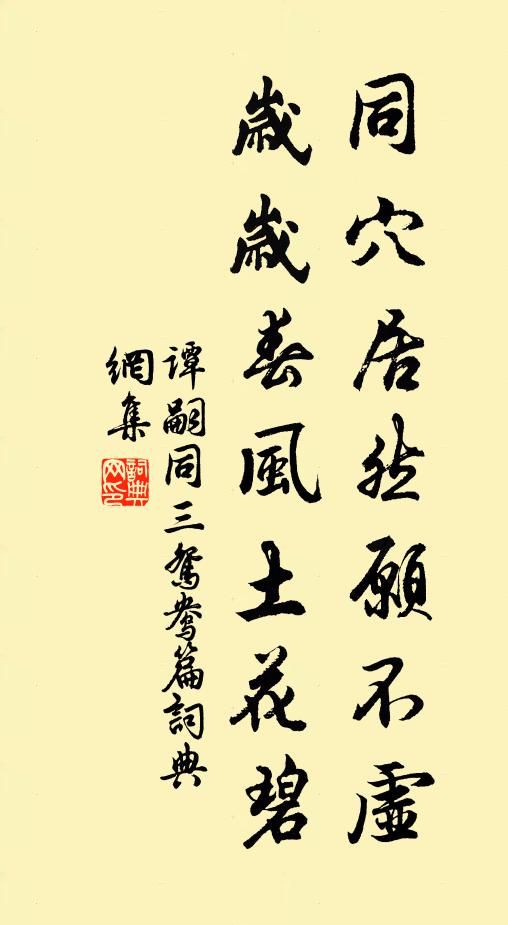 同穴居然願不虛
歲歲春風土花碧
谭嗣同三鴛鴦篇詞典
網集
詞典
网印